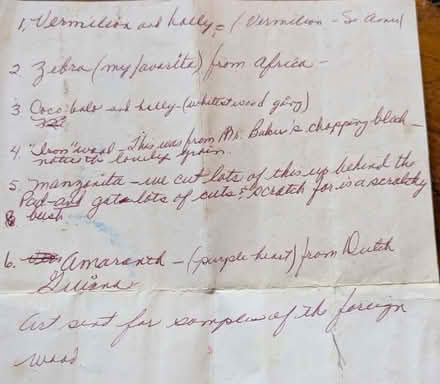 1. Vermilion and holly = (Vermilion - So. Amer)
2. Zebra (my favorite) from Africa -
3. Coco-bolo and holly - (whitest wood going)
4. "Iron" wood - This was from Mr. Baker's chopping block -
note the lovely grain.
5. Manzanita - we cut lots of this up behind the
and got lots of cuts & scratch for is a scratchy
bush
6. Amaranth - (purple heart) from Dutch
Guiana
Art sent for samples of the foreign
wood